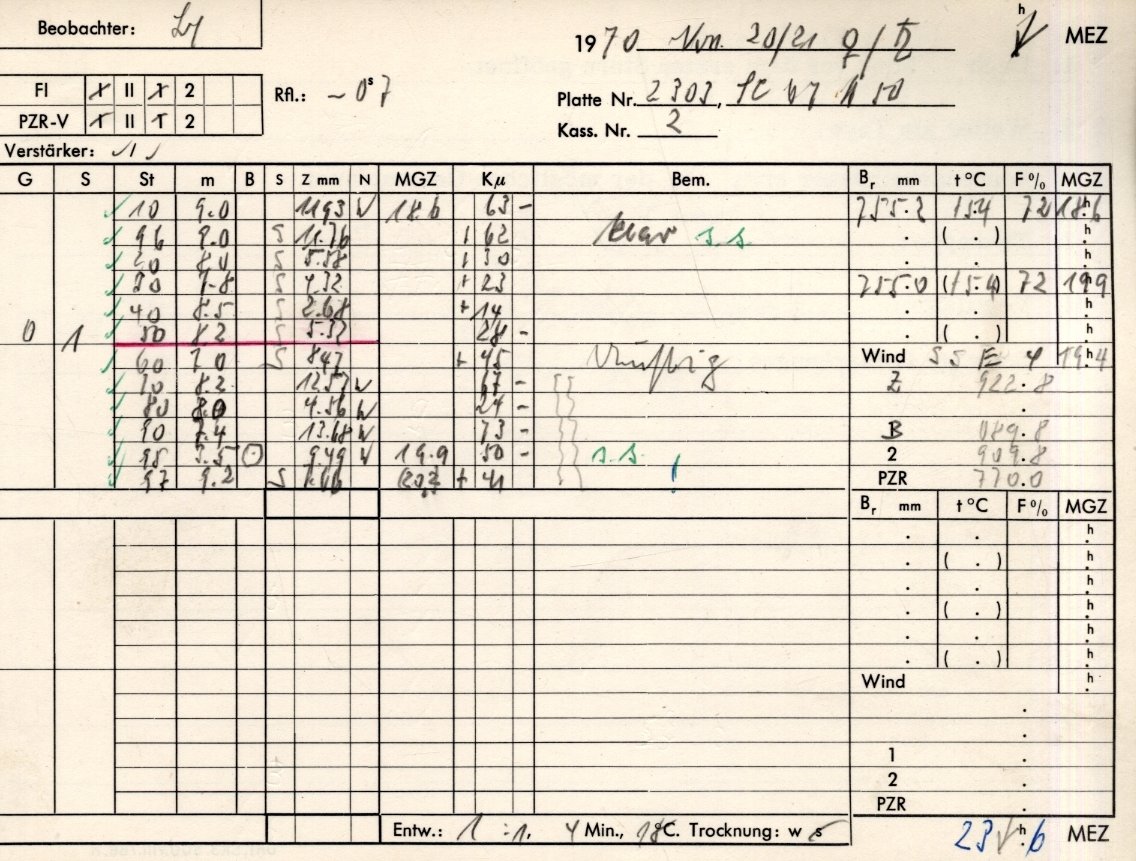 Beobachter:
1970 Nov. 20/21 ♀/♄ h MEZ
FI X II X 2
Rfl.: ~ 0ˢ7
Platte Nr. 2303,
PZR-V T II T 2
Kass. Nr. 2
Verstärker:
G S St m B S Z mm N MGZ Kμ Bem. Bᵣ mm t °C F % MGZ
10 9.0 11.93 W 18.6 63 - 755.2 15.4 72 18.ʰ6
96 9.0 S 11.76 + 62 klar s.s. . ( . ) .ʰ
20 8.4 S 5.58 + 30
30 7.8 S 4.32 + 23 755.0 (15.4) 72 19.9
40 8.5 S 2.68 + 14 .ʰ
0 1 50 8.2 S 5.32 28 - . ( . ) .ʰ
60 7.0 S 8.47 + 45 Wind SSE 4 19.ʰ4
70 8.2 12.57 W 67 - Z 922.8
80 8.0 4.56 W 24 - .
90 7.4 13.68 W 73 - B 089.8
95 3.5 9.49 W 19.9 50 - s.s. 2 909.8
97 9.2 S + 41 ! PZR 770.0
Bᵣ mm t °C F % MGZ
. . .ʰ
. ( . ) .ʰ
. . .ʰ
. ( . ) .ʰ
. . .ʰ
. ( . ) .ʰ
Wind .ʰ
.
.
1 .
2 .
PZR .
Entw.: 1 : 1, 4 Min., 18°C. Trocknung: w s 23.ʰ6 MEZ